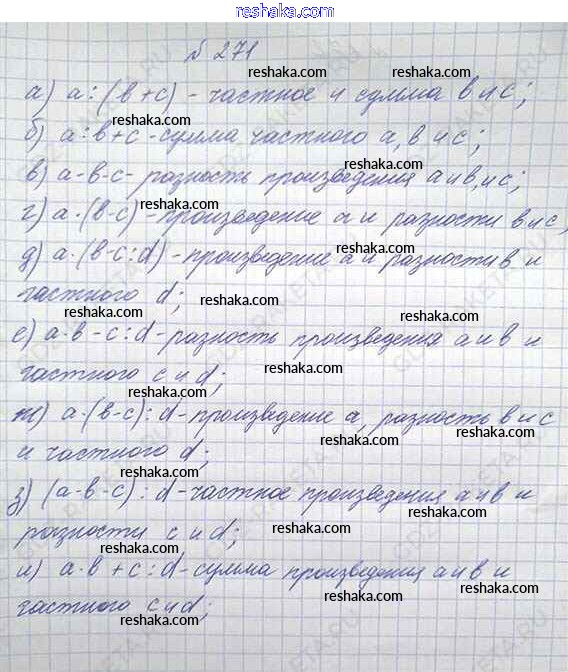 reshaka.com
№ 271
reshaka.com
а) a : (в + с) - частное и сумма в и с;
reshaka.com
б) a : в + с - сумма частного а, в и с;
reshaka.com
в) a · в - с - разность произведения а и в, и с;
reshaka.com
г) a · (в - с) - произведение а и разности в и с,
reshaka.com
д) a · (в - с : d) - произведение а и разности в и
reshaka.com
частного d;
reshaka.com
е) a · в - с : d - разность произведения а и в и
reshaka.com
частного с и d;
reshaka.com
ж) a · (в - с) : d - произведение а, разность в и с
reshaka.com
и частного d;
reshaka.com
з) (a · в - с) : d - частное произведения а и в и
reshaka.com
разности с и d;
reshaka.com
и) a · в + с : d - сумма произведения а и в и
reshaka.com
частного с и d;
reshaka.com